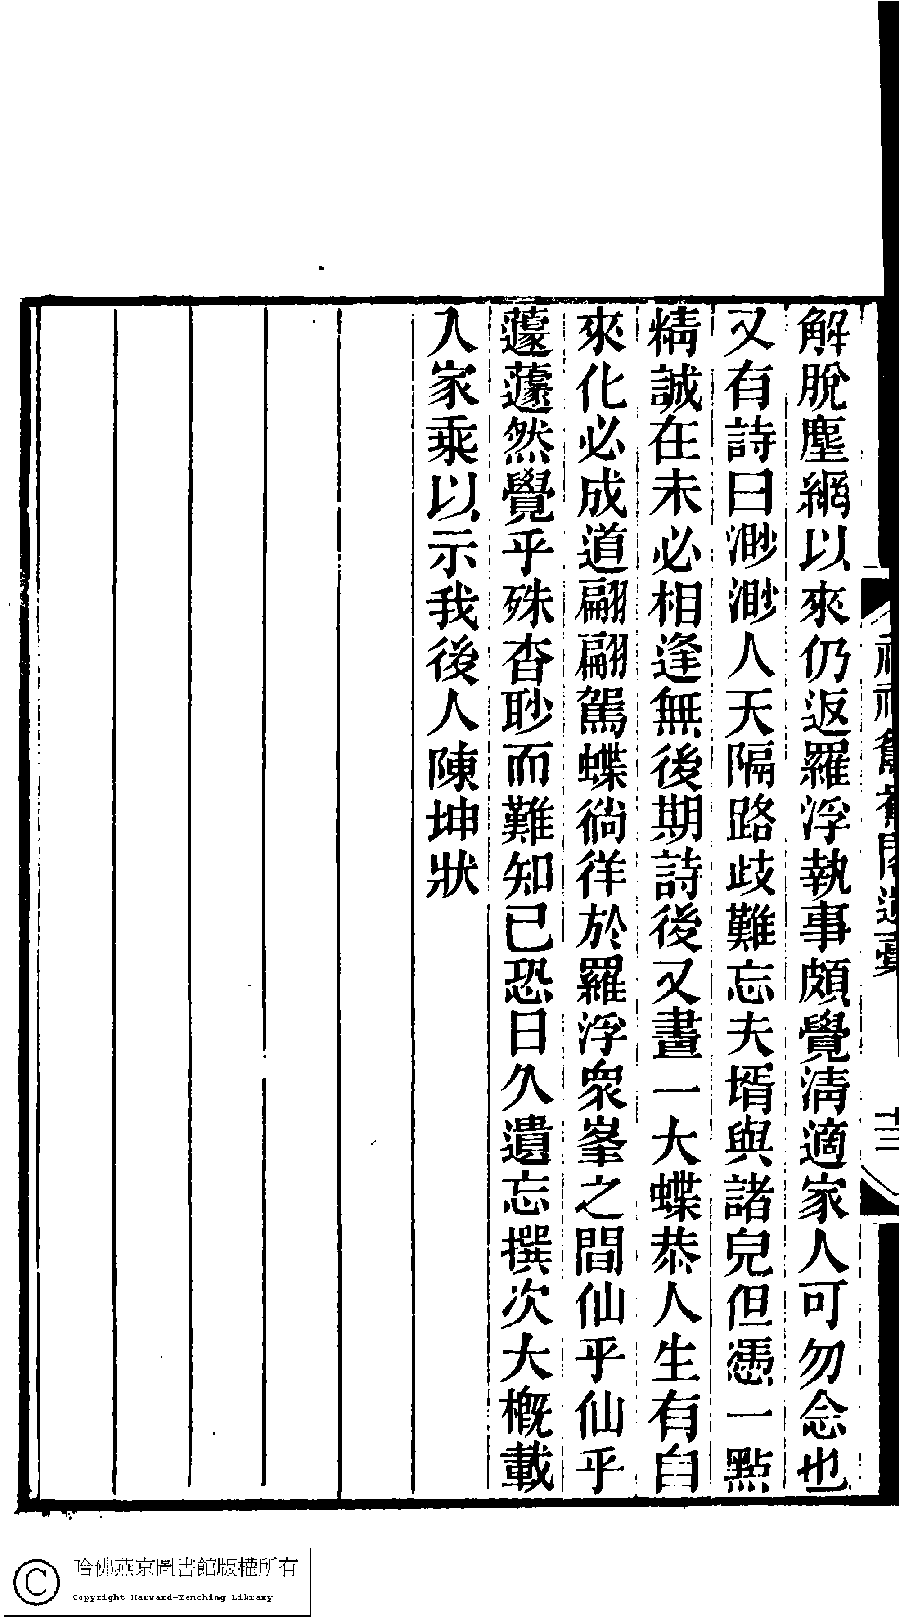 解脫塵網以來仍返羅浮執事頗覺淸適家人可勿念也
又有詩曰渺渺人天隔路歧難忘夫壻與諸兒但憑一點
精誠在未必相逢無後期詩後又畫一大蝶恭人生有自
來化必成道翩翩駕蝶徜徉於羅浮衆峯之間仙乎仙乎
蘧蘧然覺乎殊杳眇而難知已恐日久遺忘撰次大槪載
入家乘以示我後人陳坤狀
十三
哈佛燕京圖書館版權所有
Copyright Harvard-Yenching Library